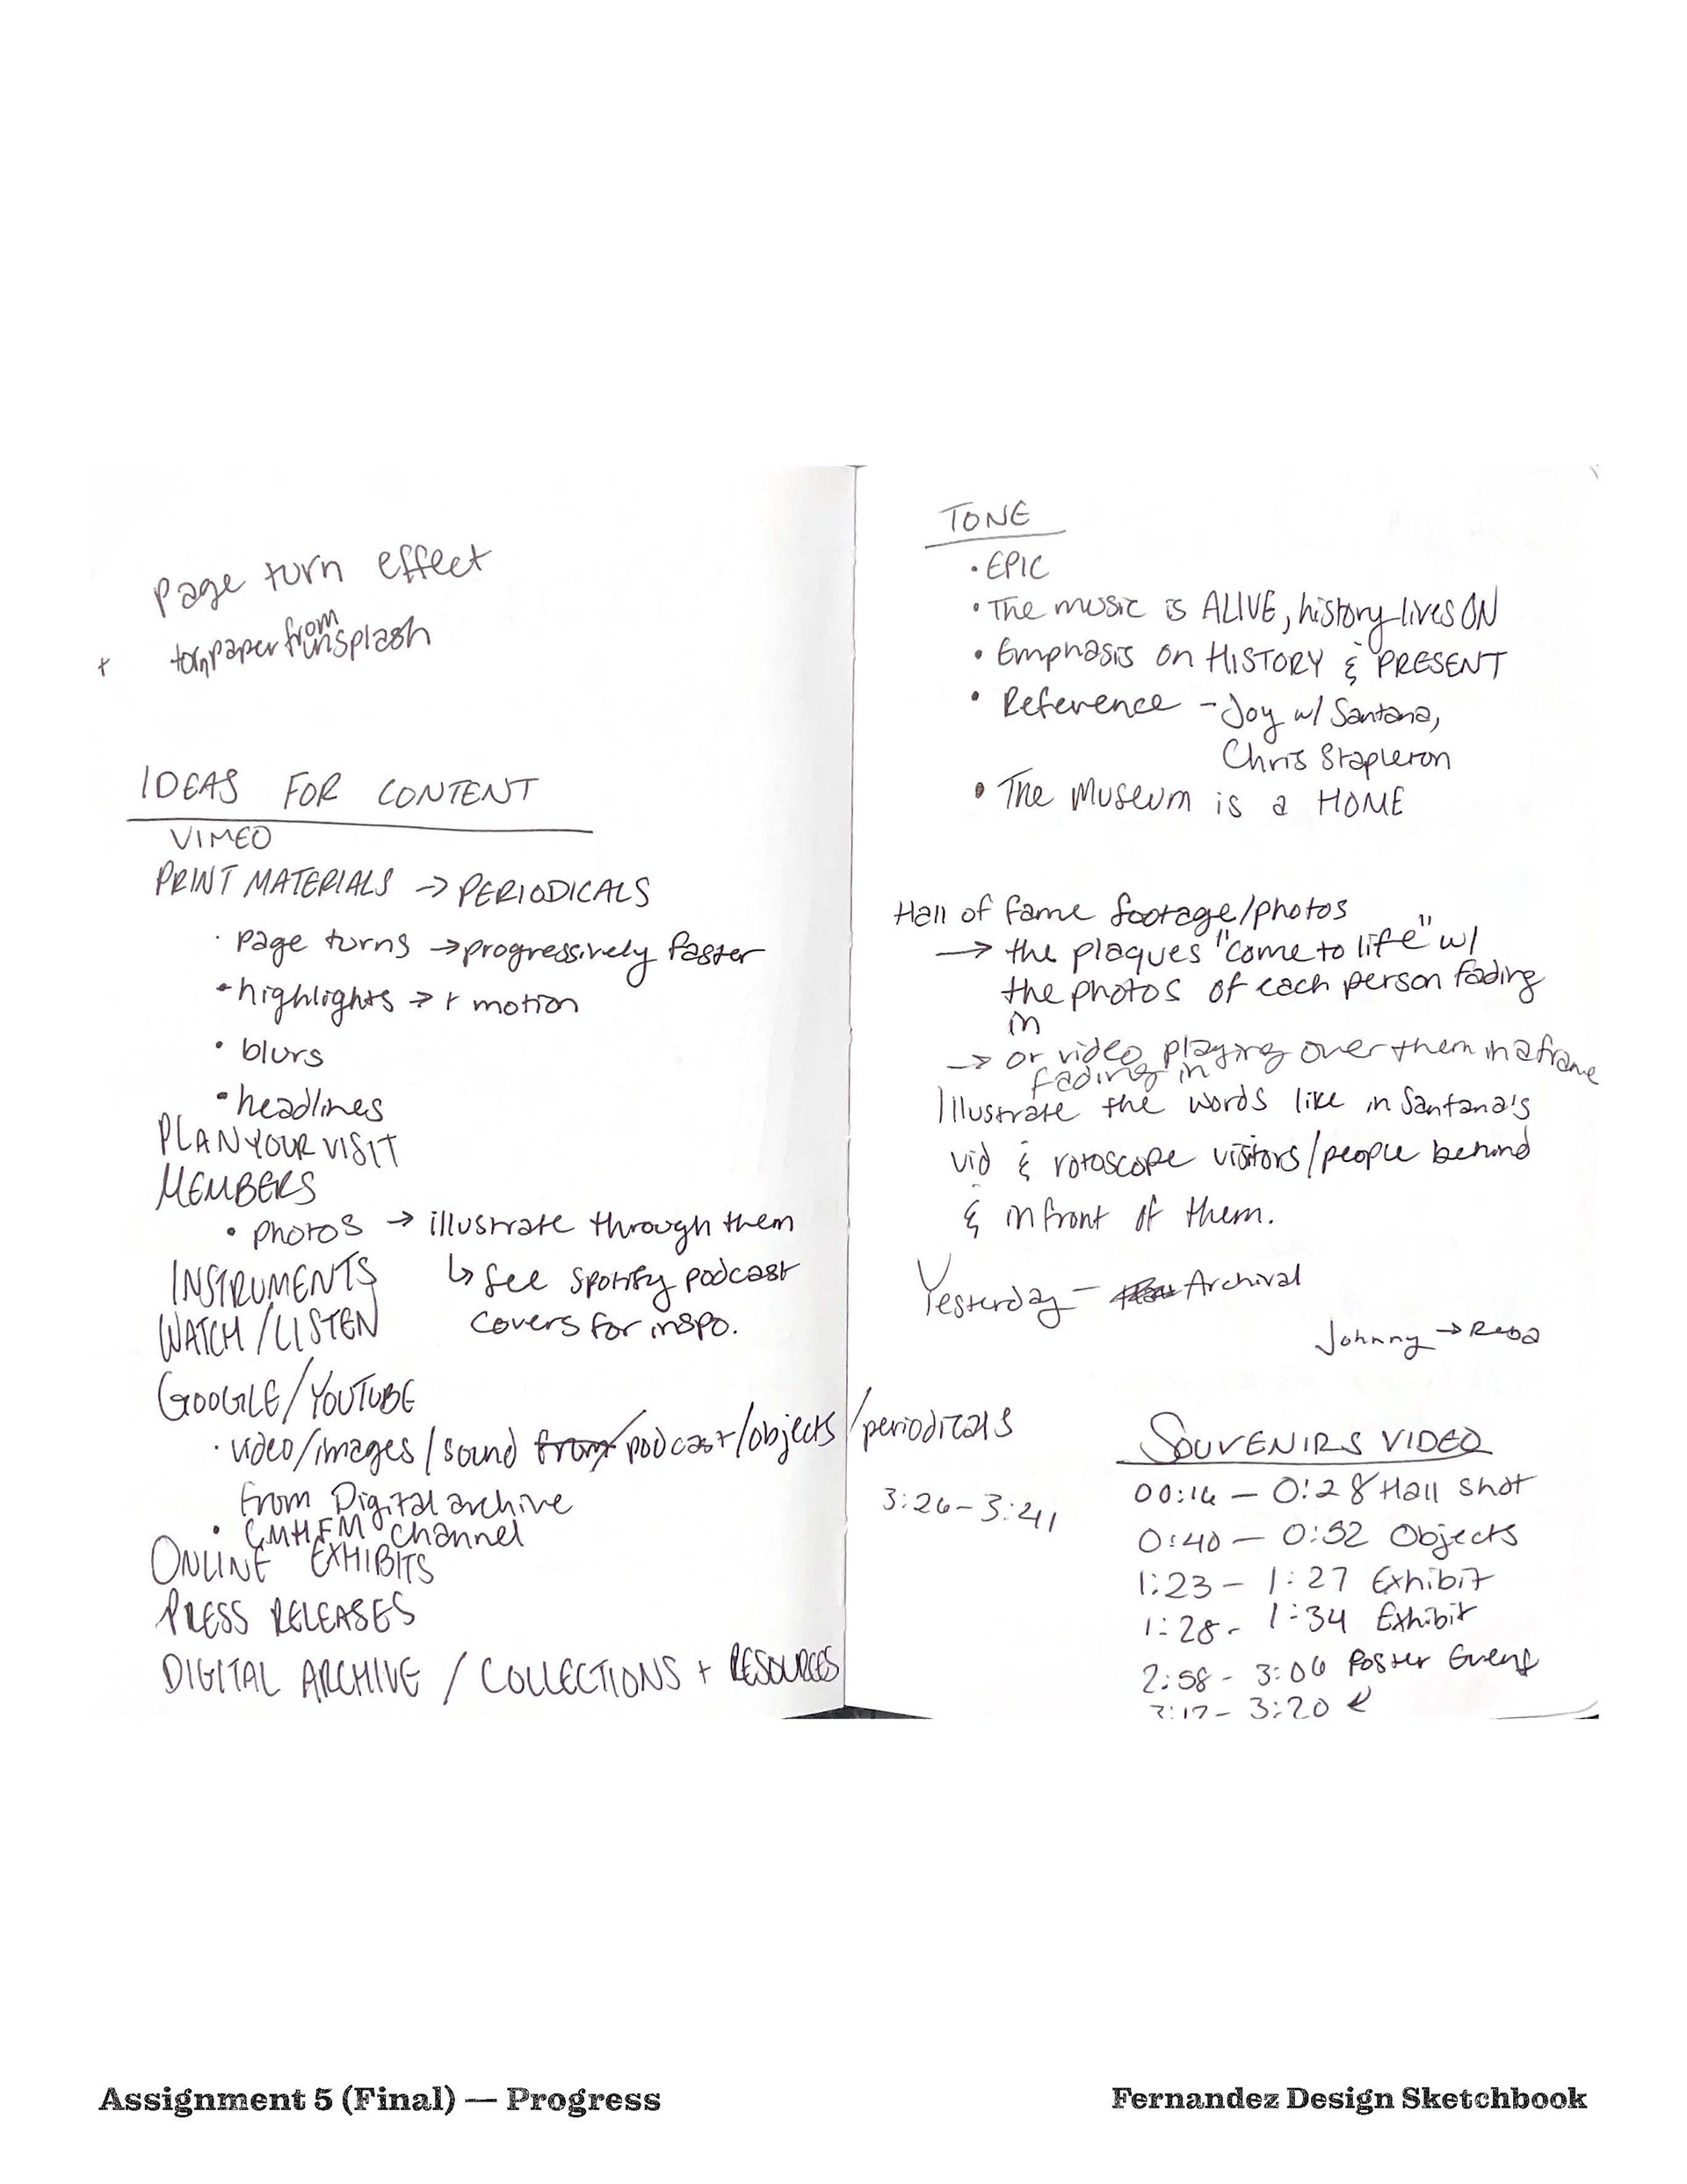 Page turn effect
+ torn paper from unsplash
IDEAS FOR CONTENT
VIMEO
PRINT MATERIALS → PERIODICALS
· page turns → progressively faster
· highlights → + motion
· blurs
· headlines
PLAN YOUR VISIT
MEMBERS
· photos → illustrate through them
↳ See spotify podcast
covers for inspo.
INSTRUMENTS
WATCH/LISTEN
GOOGLE/YOUTUBE
· video/images/sound from podcast/objects/periodicals
from Digital archive
· CMHFM channel
ONLINE EXHIBITS
PRESS RELEASES
DIGITAL ARCHIVE / COLLECTIONS + RESOURCES
TONE
· EPIC
· The music is ALIVE, history lives ON
· Emphasis on HISTORY & PRESENT
· Reference - Joy w/ Santana,
Chris Stapleton
· The Museum is a HOME
Hall of fame footage/photos
→ the plaques "come to life" w/
the photos of each person fading
in
→ or video playing over them in a frame
fading in
Illustrate the words like in Santana's
vid & rotoscope visitors/people behind
& in front of them.
Yesterday - Archival
Johnny → Reba
3:26-3:241
SOUVENIRS VIDEO
00:16 - 0:28 Hall shot
0:40 - 0:52 Objects
1:23 - 1:27 Exhibit
1:28 - 1:34 Exhibit
2:58 - 3:06 Poster Event
3:17 - 3:20 ↙
Assignment 5 (Final) — Progress
Fernandez Design Sketchbook